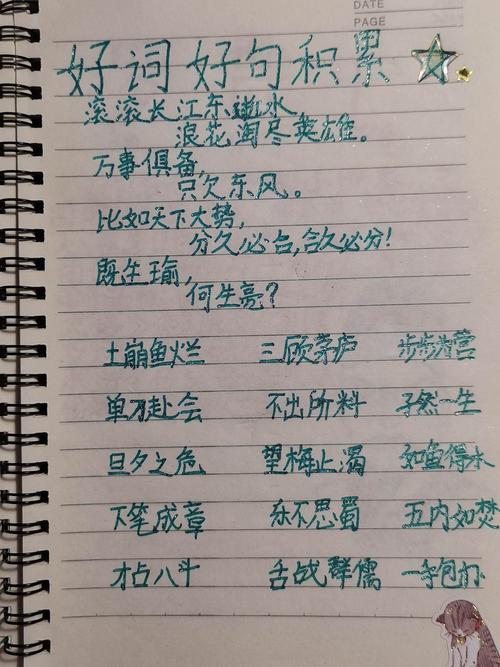 DATE
PAGE
好词好句积累
滚滚长江东逝水
浪花淘尽英雄。
万事俱备,
只欠东风。
比如天下大势,
分久必合,合久必分!
既生瑜,
何生亮?
土崩鱼烂 三顾茅庐 步步为营
单刀赴会 不出所料 孑然一生
旦夕之危 望梅止渴 如鱼得水
下笔成章 乐不思蜀 五内如焚
才占八斗 舌战群儒 一手包办